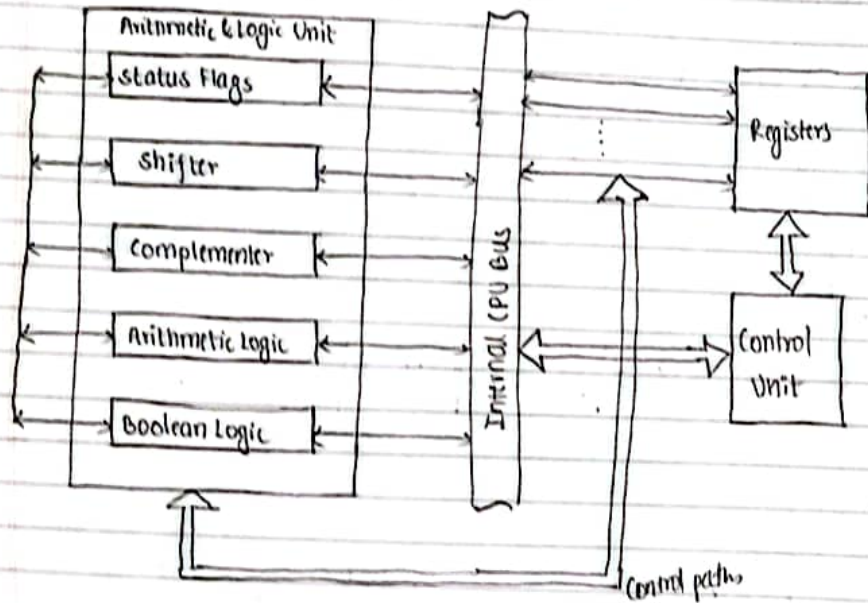 Arithmetic & Logic Unit
Status Flags
Shifter
Complementer
Arithmetic Logic
Boolean Logic
Internal CPU Bus
Registers
Control
Unit
Control paths